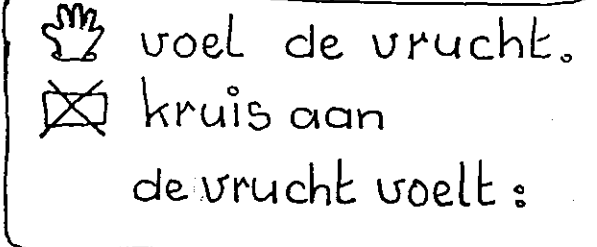 voel de vrucht.
kruis aan
de vrucht voelt: